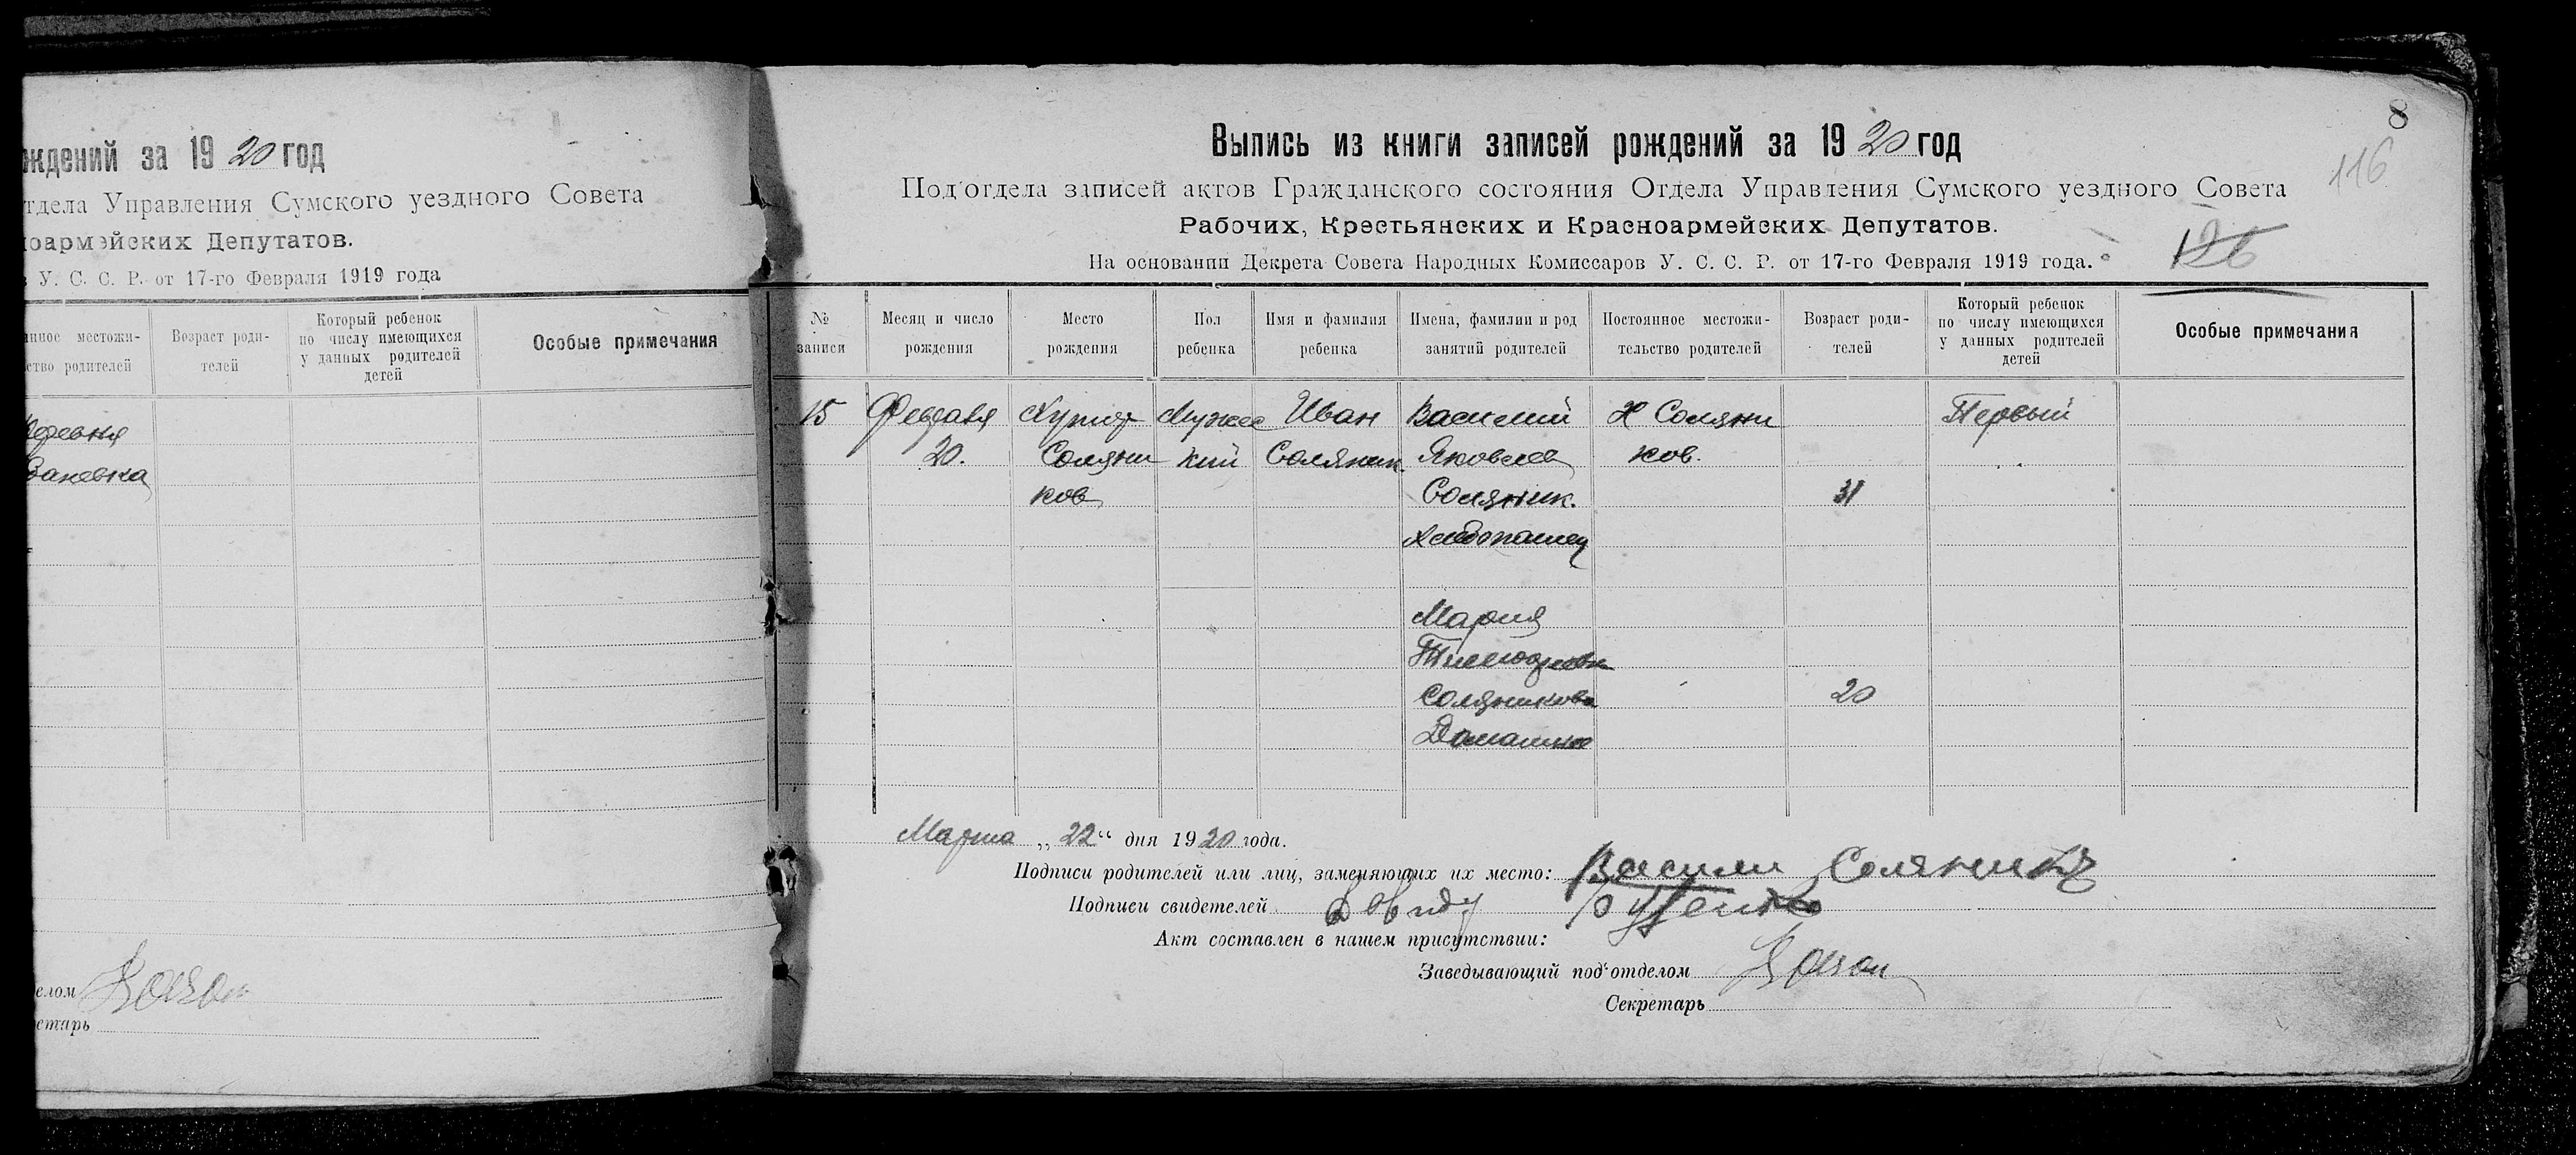 ждений за 1920 год
тдела Управления Сумского уездного Совета
ноармейских Депутатов.
У. С. С. Р. от 17-го Февраля 1919 года
нное местожи-
ство родителей
Возраст роди-
телей
Который ребенок
по числу имеющихся
у данных родителей
детей
Особые примечания
деревня
елом
етарь
8
116
126
Выпись из книги записей рождений за 1920 год
Под'отдела записей актов Гражданского состояния Отдела Управления Сумского уездного Совета
Рабочих, Крестьянских и Красноармейских Депутатов.
На основании Декрета Совета Народных Комиссаров У. С. С. Р. от 17-го Февраля 1919 года.
№
записи
Месяц и число
рождения
Место
рождения
Пол
ребенка
Имя и фамилия
ребенка
Имена, фамилии и род
занятий родителей
Постоянное местожи-
тельство родителей
Возраст роди-
телей
Который ребенок
по числу имеющихся
у данных родителей
детей
Особые примечания
15
Февраля
20.
Хутор
Соляни
ков
Мужес
кий
Иван
Соляник
Василий
Яковлев
Соляник.
хлебопашец
Мария
Соляникова
Домашнее
Х Соляни
ков.
31
20
Первый
Марта „22“ дня 1920 года.
Подписи родителей или лиц, заменяющих их место: Васили Соляникъ
Подписи свидетелей
Акт составлен в нашем присутствии:
Заведывающий под'отделом
Секретарь